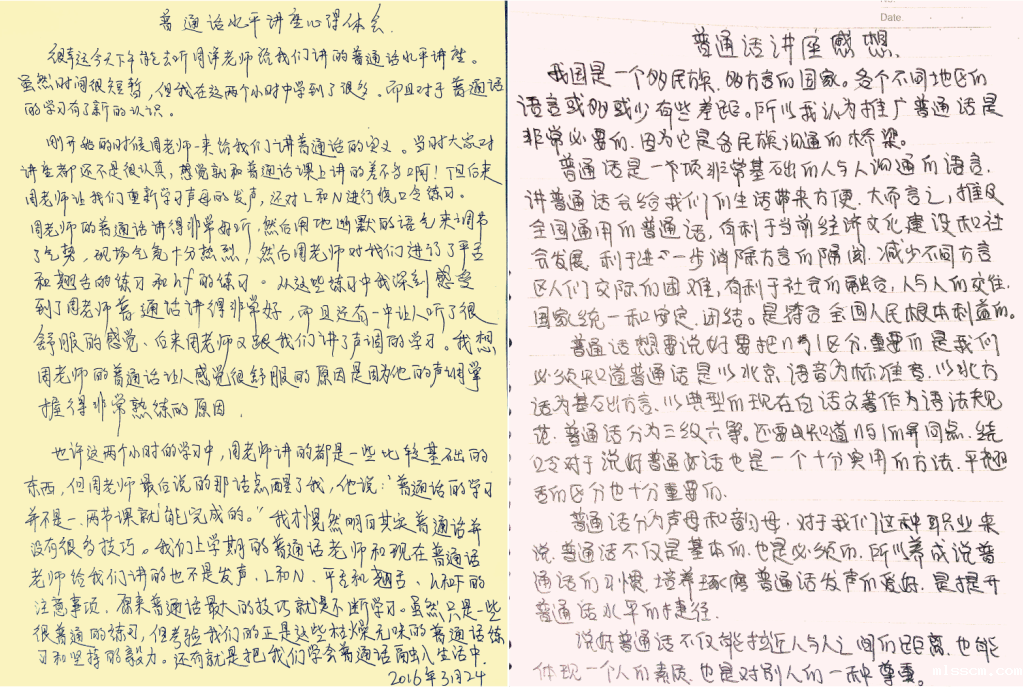 普通话水平讲座心得体会.
很幸运今天下午能去听周洋老师给我们讲的普通话水平讲座。
虽然时间很短暂,但我在这两个小时中学到了很多。而且对于普通话
的学习有了新的认识。
刚开始的时候周老师一来给我们讲普通话的定义。当时大家对
讲座都还不是很认真,感觉就和普通话课上讲的差不多啊!但后来
周老师让我们重新学习声母的发声,还对L和N进行绕口令练习。
周老师的普通话讲得非常好听,然后用他幽默的语气来调节
了气势,现场气氛十分热烈,然后周老师对我们进行了平舌
和翘舌的练习和hf的练习。从这些练习中我深刻感受
到了周老师普通话讲得非常好,而且还有一中让人听了很
舒服的感觉、后来周老师又跟我们讲了声调的学习。我想
周老师的普通话让人感觉很舒服的原因是因为他的声调掌
握得非常熟练的原因.
也许这两个小时的学习中,周老师讲的都是一些比较基础的
东西,但周老师最后说的那话点醒了我,他说:“普通话的学习
并不是一、两节课就能完成的。”我才恍然明白其实普通话并
没有很多技巧。我们上学期的普通话老师和现在普通话
老师给我们讲的也不是发声、L和N、平舌和翘舌、h和f的
注意事项,原来普通话最大的技巧就是不断学习。虽然只是一些
很普通的练习,但考验我们的正是这些枯燥无味的普通话练
习和坚持的毅力。还有就是把我们学会普通话融入生活中.
2016年3月24
Date.
普通话讲座感想.
我国是一个多民族、多方言的国家。各个不同地区的
语言或多或少有些差距。所以我认为推广普通话是
非常必要的,因为它是各民族沟通的桥梁。
普通话是一项非常基础的人与人沟通的语言,
讲普通话会给我们的生活带来方便,大而言之,推及
全国通用的普通话,有利于当前经济文化建设和社
会发展,利于进一步消除方言的隔阂,减少不同方言
区人们交际的困难,有利于社会的融合,人与人的交往,
国家统一和安定、团结。是符合全国人民根本利益的。
普通话想要说好要把n与l区分,重要的是我们
必须知道普通话是以北京语音为标准音、以北方
话为基础方言、以典型的现在白话文著作为语法规
范.普通话分为三级六等。还要知道n与l的异同点.绕
口令对于说好普通话也是一个十分实用的方法.平翘
舌的区分也十分重要的.
普通话分为声母和韵母.对于我们这种职业来
说,普通话不仅是基本的,也是必须的,所以养成说普
通话的习惯,培养琢磨普通话发声的爱好,是提升
普通话水平的捷径.
说好普通话不仅能拉近人与人之间的距离,也能
体现一个人的素质,也是对别人的一种尊重。